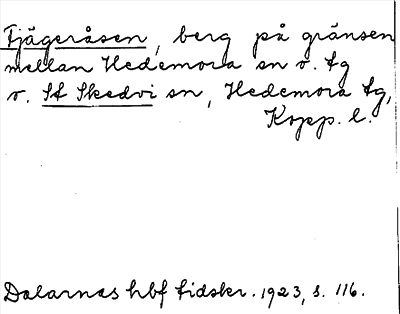 Fjägeråsen, berg på gränsen
mellan Hedemora sn o. tg
o. St Skedvi sn, Hedemora tg,
Kopp. l.
Dalarnas hbf tidskr. 1923, s. 116.